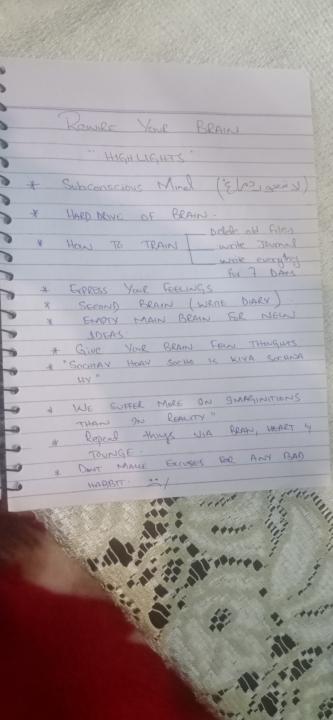 REWIRE YOUR BRAIN
"HIGHLIGHTS"
* Subconscious Mind (لاشعوری دماغ)
* HARD DRIVE OF BRAIN.
Delete old files
* HOW TO TRAIN write Journal
write everything
for 7 DAYS
* EXPRESS YOUR FEELINGS
* SECOND BRAIN (WRITE DIARY)
* EMPTY MAIN BRAIN FOR NEW
IDEAS.
* GIVE YOUR BRAIN FEW THOUGHTS
* "SOCHAY HOAY SOCHO IS KIYA SOCHNA
HY"
* WE SUFFER MORE ON IMAGINITIONS
THAN IN REALITY"
* Repeat things VIA BRAIN, HEART &
TOUNGE.
* DONT MAKE EXCUSES FOR ANY BAD
HABBIT.